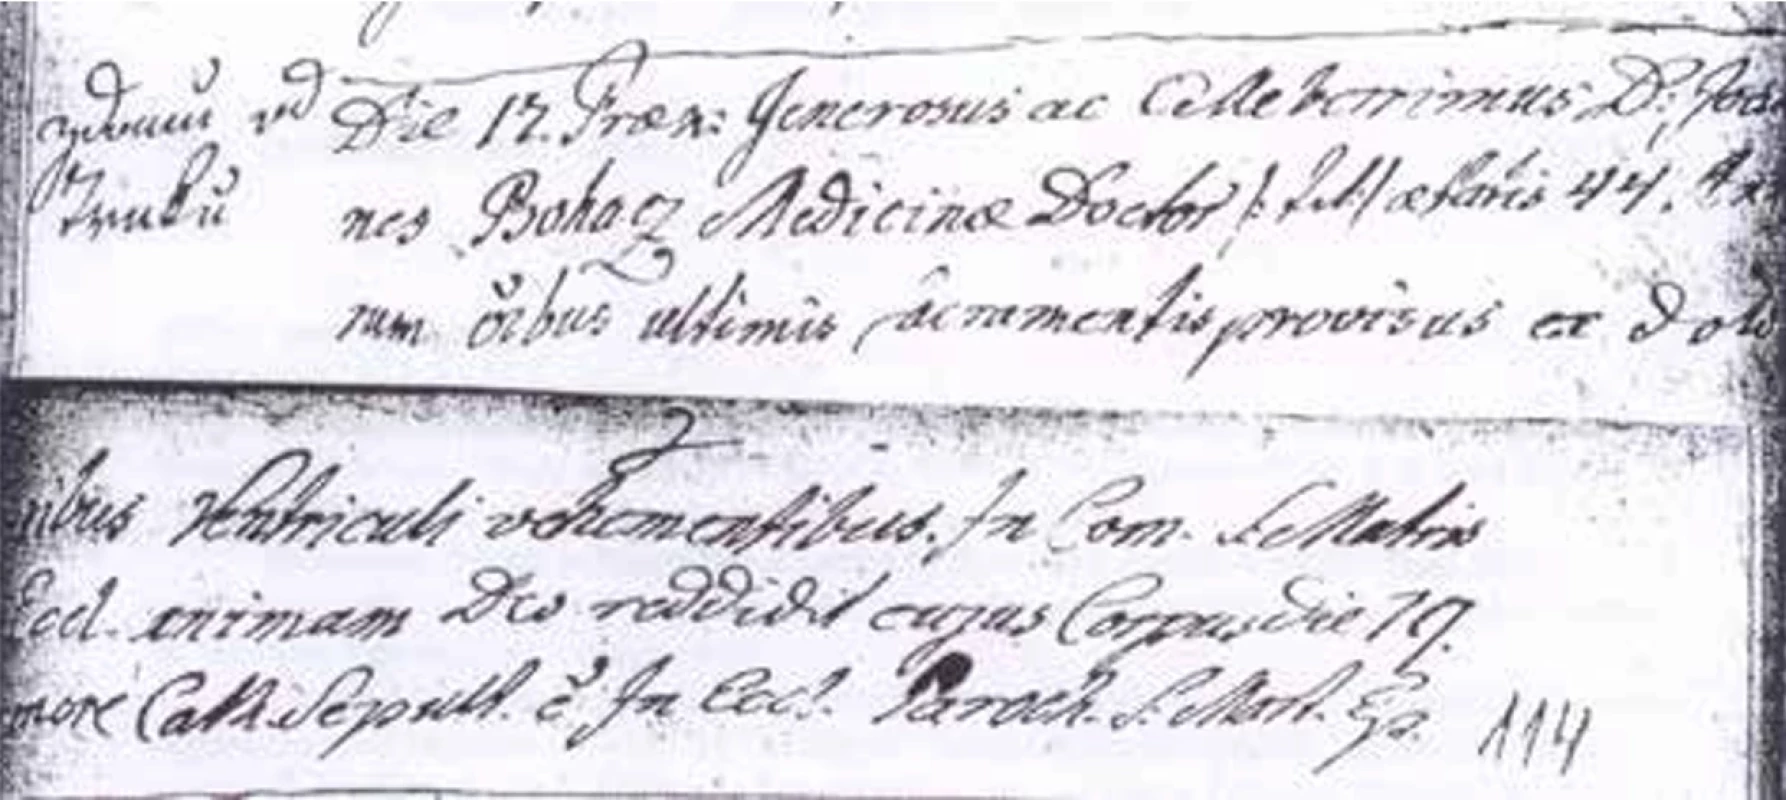 Die 17. Præs: Generosus ac Celleberrimus D. Joa
nes Bohacz Medicinæ Doctor /: tit:/ ætatis 44. An
rum õibus ultimis sacramentis provisus ex dolo
ribus Ventriculi vehementibus. In Com. S. Matris
Eccl. animam Deo reddidit cujus Corpus die 19.
more Cath. Sepult. ẽ In Eccl. Paroch. S. Mart. Ep. 114